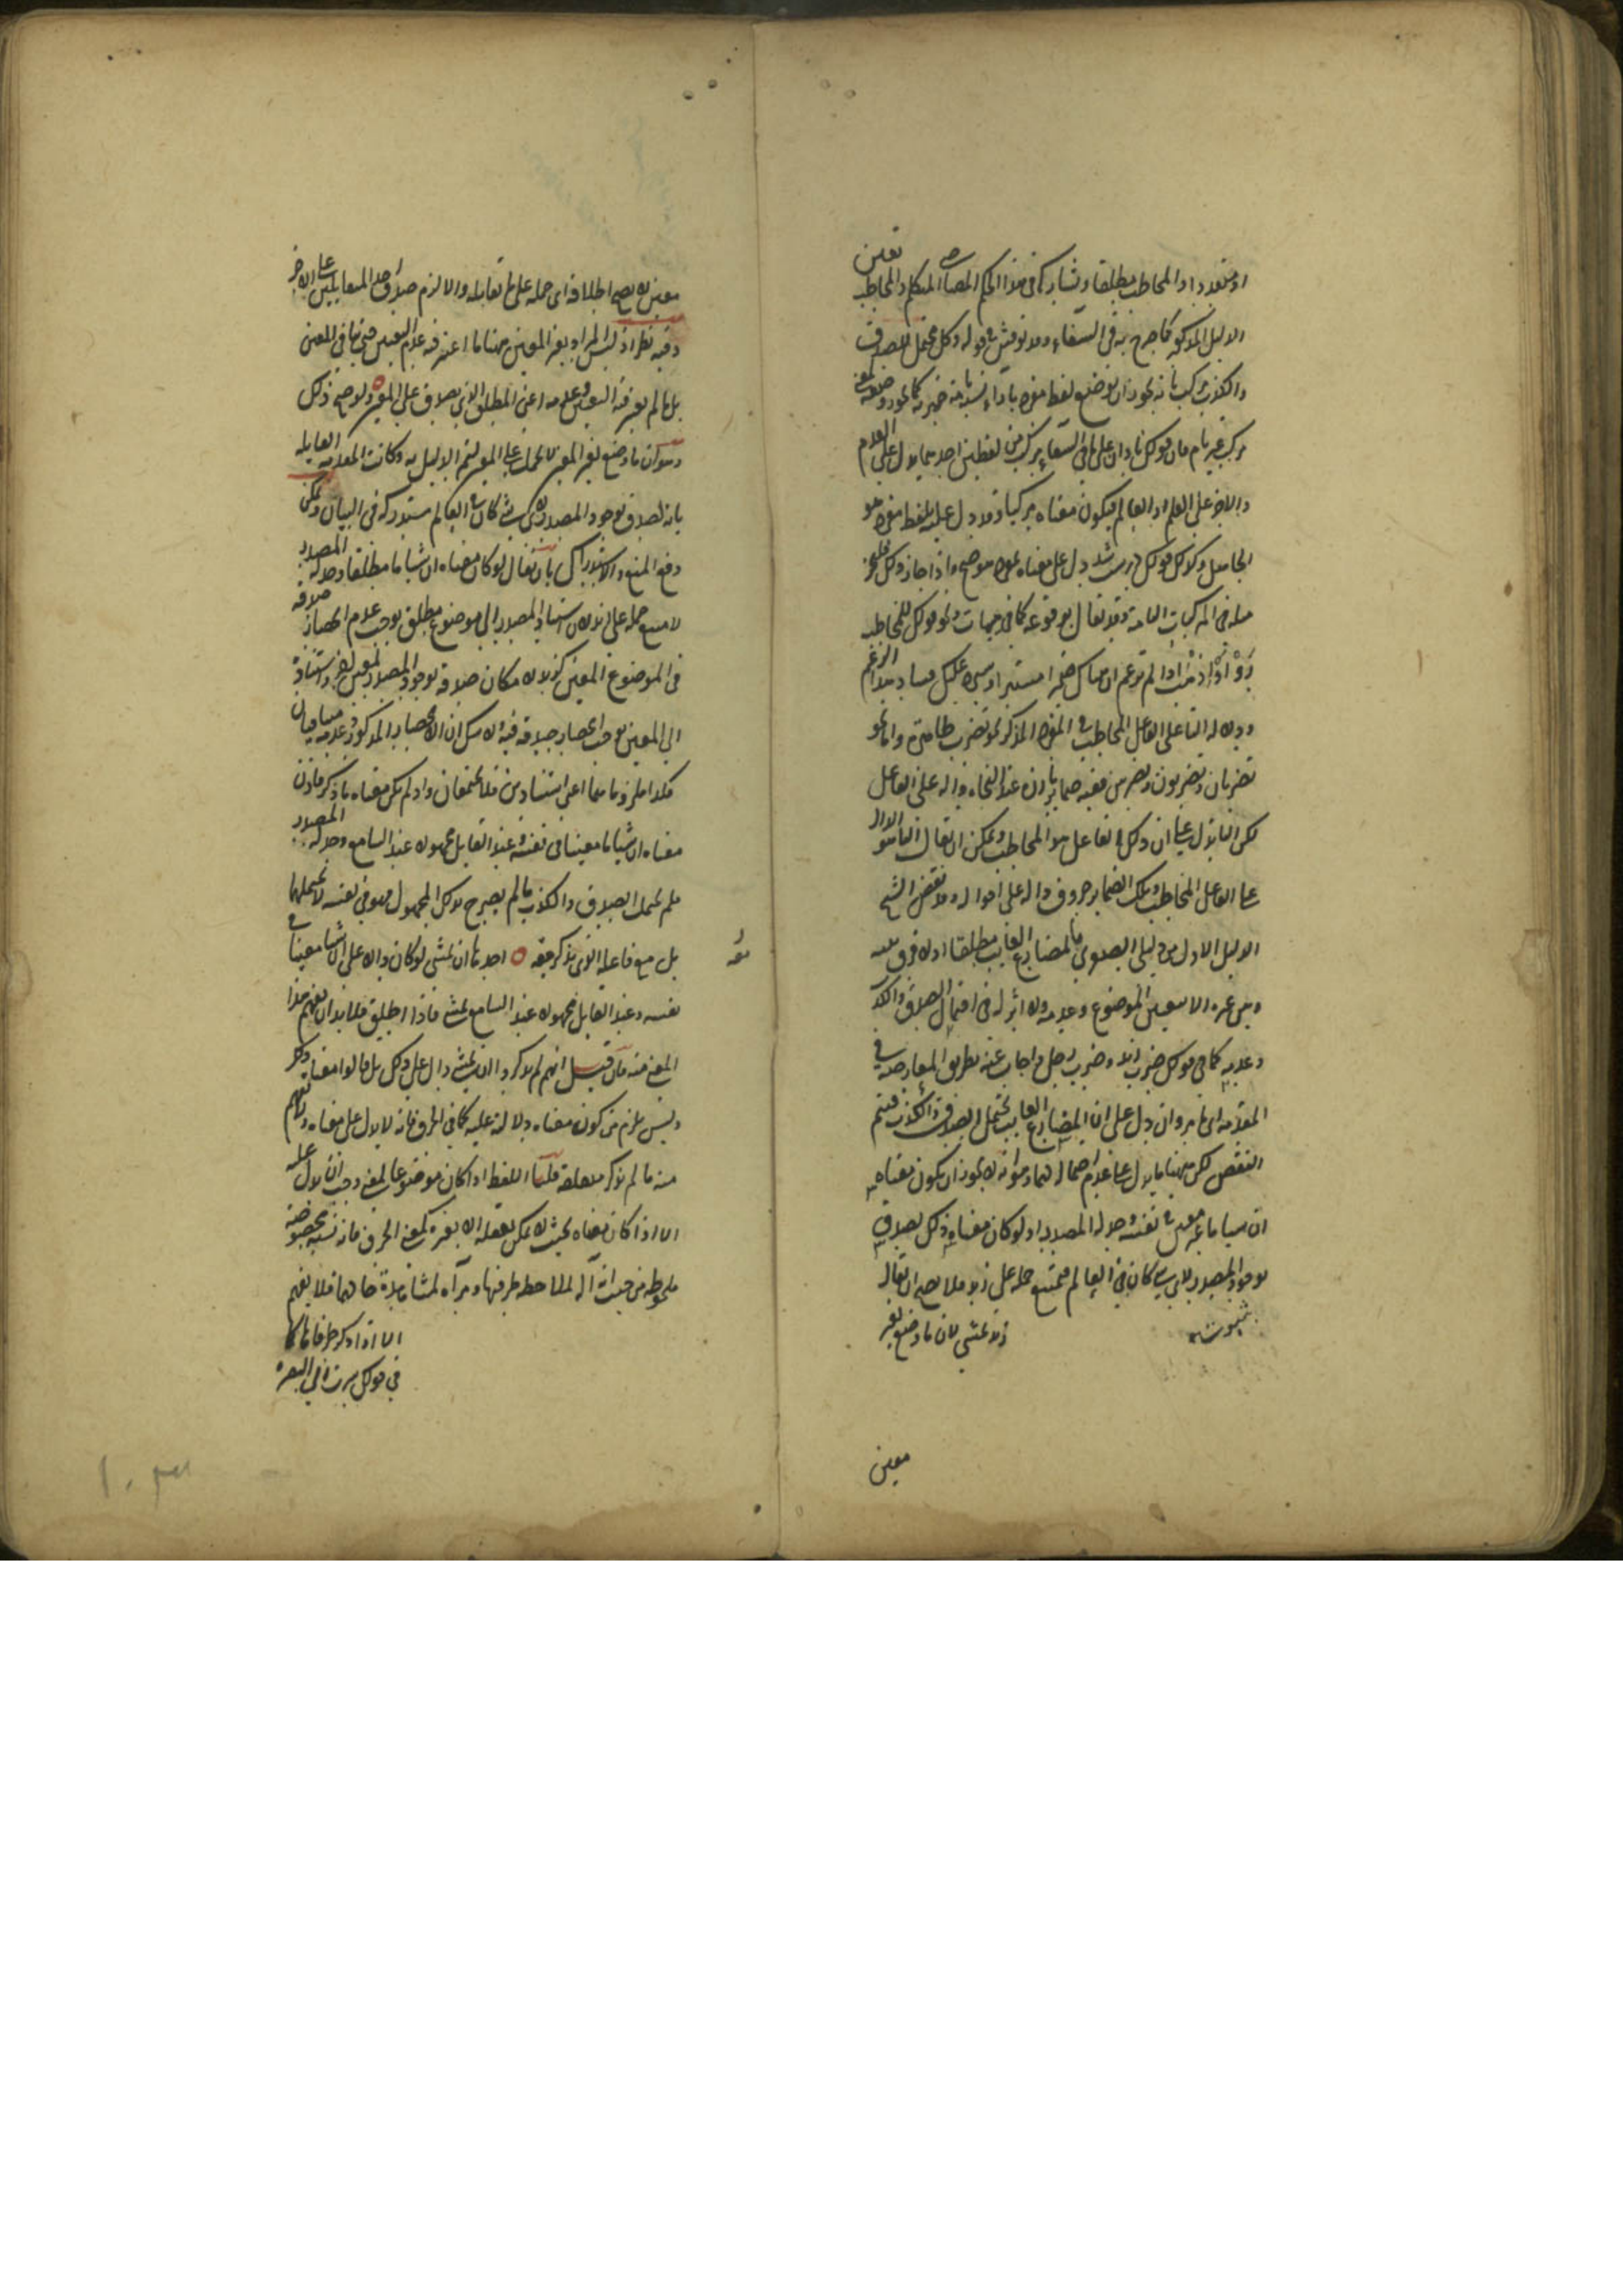 او متعدد او المخاطب مطلقا ويشاركه في هذا الحكم المضارع المتكلم والمخاطب
الدليل المذكور كما صرح به في الشفاء وقد نوقش في قوله وكل محتمل للصدق
والكذب مركب بأنه يجوز ان يوضع لفظ مفرد بازاء نسبة تامة خبرية كما يجوز وضعه لمعنى
مركب غير تام فان قولك نادان على ما في الشفاء مركب من لفظين احدهما يدل على العدم
والآخر على العلم او العالم فيكون معناه مركبا وقد دل عليه بلفظ مفرد هو
الجاهل وكذلك قولك دل على معناه بلفظ موضوع واذا جاز ذلك فليجز
مثله في المركبات التامة وقد يقال بوقوعه كما في هيهات ونحو قولك للمخاطب
اذا لم تزعم ان هناك ضميرا مستترا وسيرد عليك فساد هذا الزعم
ودلالة التاء على الفاعل المخاطب في المفرد المذكر نحو تضرب ظاهرة واما نحو
تضربان وتضربون وتضربين ففيه ضماير بارزة عند النحاة دالة على الفاعل
لكن التاء تدل على ان ذلك الفاعل هو المخاطب ويمكن ان يقال التاء هو الدال
على الفاعل المخاطب وتلك الضماير حروف دالة على احواله وقد نقض الشيخ
الدليل الاول من دليلي الصغرى بالمضارع الغايب مطلقا اذ لا فرق بينه
وبين غيره الا بتعيين الموضوع وعدمه ولا اثر له في احتمال الصدق والكذب
وعدمه كما في قولك ضرب زيد وضرب رجل واجاب عنه بطريق المعارضة في
المقدمة اي ما مر وان دل على ان المضارع الغايب يحتمل الصدق والكذب فيتم
النقض لكن ههنا ما يدل على عدم احتماله لهما وهو انه لا يجوز ان يكون معناه
ان شيئا ما غير معين في نفسه وجد له المصدر اذ لو كان معناه ذلك لصدق
بوجود المصدر لاي شيء كان في العالم فيمتنع حمله على زيد فلا يصح ان يقال
زيد يمشي لان ما وضع لغير
معين
معين لا يصح اطلاقه اي حمله على ما يقابله والا لزم صدق احد المتقابلين على الآخر
وفيه نظر اذ ليس المراد بغير المعين ههنا ما اعتبر فيه عدم التعيين حتى ينافي المعين
بل ما لم يعتبر فيه التعيين وعدمه اعني المطلق الذي يصدق على المعين ولو صح ذلك
وهو ان ما وضع لغير المعين لا يحمل على المعين لتم الدليل به وكانت المقدمة القايلة
بانه لصدق بوجود المصدر لاي شيء كان في العالم مستدركة في البيان ويمكن
دفع المنع والاستدراك بان يقال لو كان معناه ان شيئا ما مطلقا وجد له المصدر
لامتنع حمله على زيد لان اسناد المصدر الى موضوع مطلق يوجب عدم انحصار صدقه
في الموضوع المعين كزيد لامكان صدقه بوجود المصدر لمعين آخر واسناده
الى المعين يوجب انحصار صدقه فيه ولا شك ان الانحصار المذكور وعدمه متنافيان
فكذا ملزوماهما اعني اسنادين فلا يجتمعان واذ لم يكن معناه ما ذكر فاذن
معناه ان شيئا ما معينا في نفسه وعند القايل مجهولا عند السامع وجد له المصدر
فلم يحتمل الصدق والكذب ما لم يصرح بذلك المجهول فهو في نفسه لا يحتملهما
بل مع فاعله الذي يذكر معه احدها ان يمشي لو كان دالا على ان شيئا معينا في
نفسه وعند القايل مجهولا عند السامع يمشي فاذا اطلق فلا بد ان يفهم هذا
المعنى منه فان قيل انهم لم يذكروا ان يمشي دال على ذلك بل قالوا معناه ذلك
وليس يلزم من كونه معناه دلالته عليه كما في الحرف فانه لا يدل على معناه ولا يفهم
منه ما لم يذكر متعلقه قلنا اللفظ اذا كان موضوعا لمعنى وجب ان يدل عليه
الا اذا كان معناه بحيث لا يمكن تعقله الا بغيره كمعنى الحرف فانه نسبة مخصوصة
ملحوظة من حيث انها آلة لملاحظة طرفيها ومرآة لمشاهدة حالهما فلا يفهم
الا اذا ذكر طرفاها كما
في قولك سرت الى البصرة